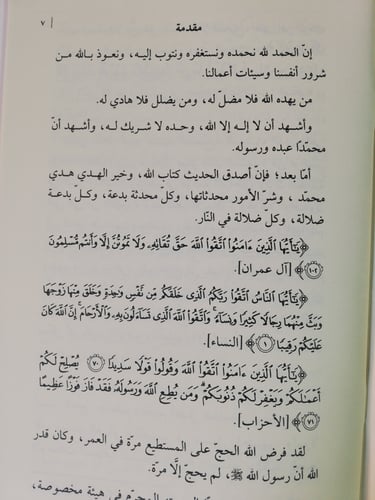 ٧ مقدمة
إنّ الحمد لله نحمده ونستغفره ونتوب إليه، ونعوذ بالله من
شرور أنفسنا وسيئات أعمالنا.
من يهده الله فلا مضلّ له، ومن يضلل فلا هادي له.
وأشهد أن لا إله إلا الله، وحده لا شريك له، وأشهد أنّ
محمّدًا عبده ورسوله.
أمّا بعد؛ فإنّ أصدق الحديث كتاب الله، وخير الهدي هدي
محمّد، وشرّ الأمور محدثاتها، وكلّ محدثة بدعة، وكلّ بدعة
ضلالة، وكلّ ضلالة في النّار.
﴿يَٰٓأَيُّهَا ٱلَّذِينَ ءَامَنُوا۟ ٱتَّقُوا۟ ٱللَّهَ حَقَّ تُقَاتِهِۦ وَلَا تَمُوتُنَّ إِلَّا وَأَنتُم مُّسْلِمُونَ
﴿١٠٢﴾﴾ [آل عمران].
﴿يَٰٓأَيُّهَا ٱلنَّاسُ ٱتَّقُوا۟ رَبَّكُمُ ٱلَّذِى خَلَقَكُم مِّن نَّفْسٍ وَٰحِدَةٍ وَخَلَقَ مِنْهَا زَوْجَهَا
وَبَثَّ مِنْهُمَا رِجَالًا كَثِيرًا وَنِسَآءً ۚ وَٱتَّقُوا۟ ٱللَّهَ ٱلَّذِى تَسَآءَلُونَ بِهِۦ وَٱلْأَرْحَامَ ۚ إِنَّ ٱللَّهَ كَانَ
عَلَيْكُمْ رَقِيبًا ﴿١﴾﴾ [النساء].
﴿يَٰٓأَيُّهَا ٱلَّذِينَ ءَامَنُوا۟ ٱتَّقُوا۟ ٱللَّهَ وَقُولُوا۟ قَوْلًا سَدِيدًا ﴿٧٠﴾ يُصْلِحْ لَكُمْ
أَعْمَٰلَكُمْ وَيَغْفِرْ لَكُمْ ذُنُوبَكُمْ ۗ وَمَن يُطِعِ ٱللَّهَ وَرَسُولَهُۥ فَقَدْ فَازَ فَوْزًا عَظِيمًا
﴿٧١﴾﴾ [الأحزاب].
لقد فرض الله الحجّ على المستطيع مرّة في العمر، وكان قدر
الله أنّ رسول الله ﷺ، لم يحجّ إلّا مرّة.
في هيئة مخصوصة،